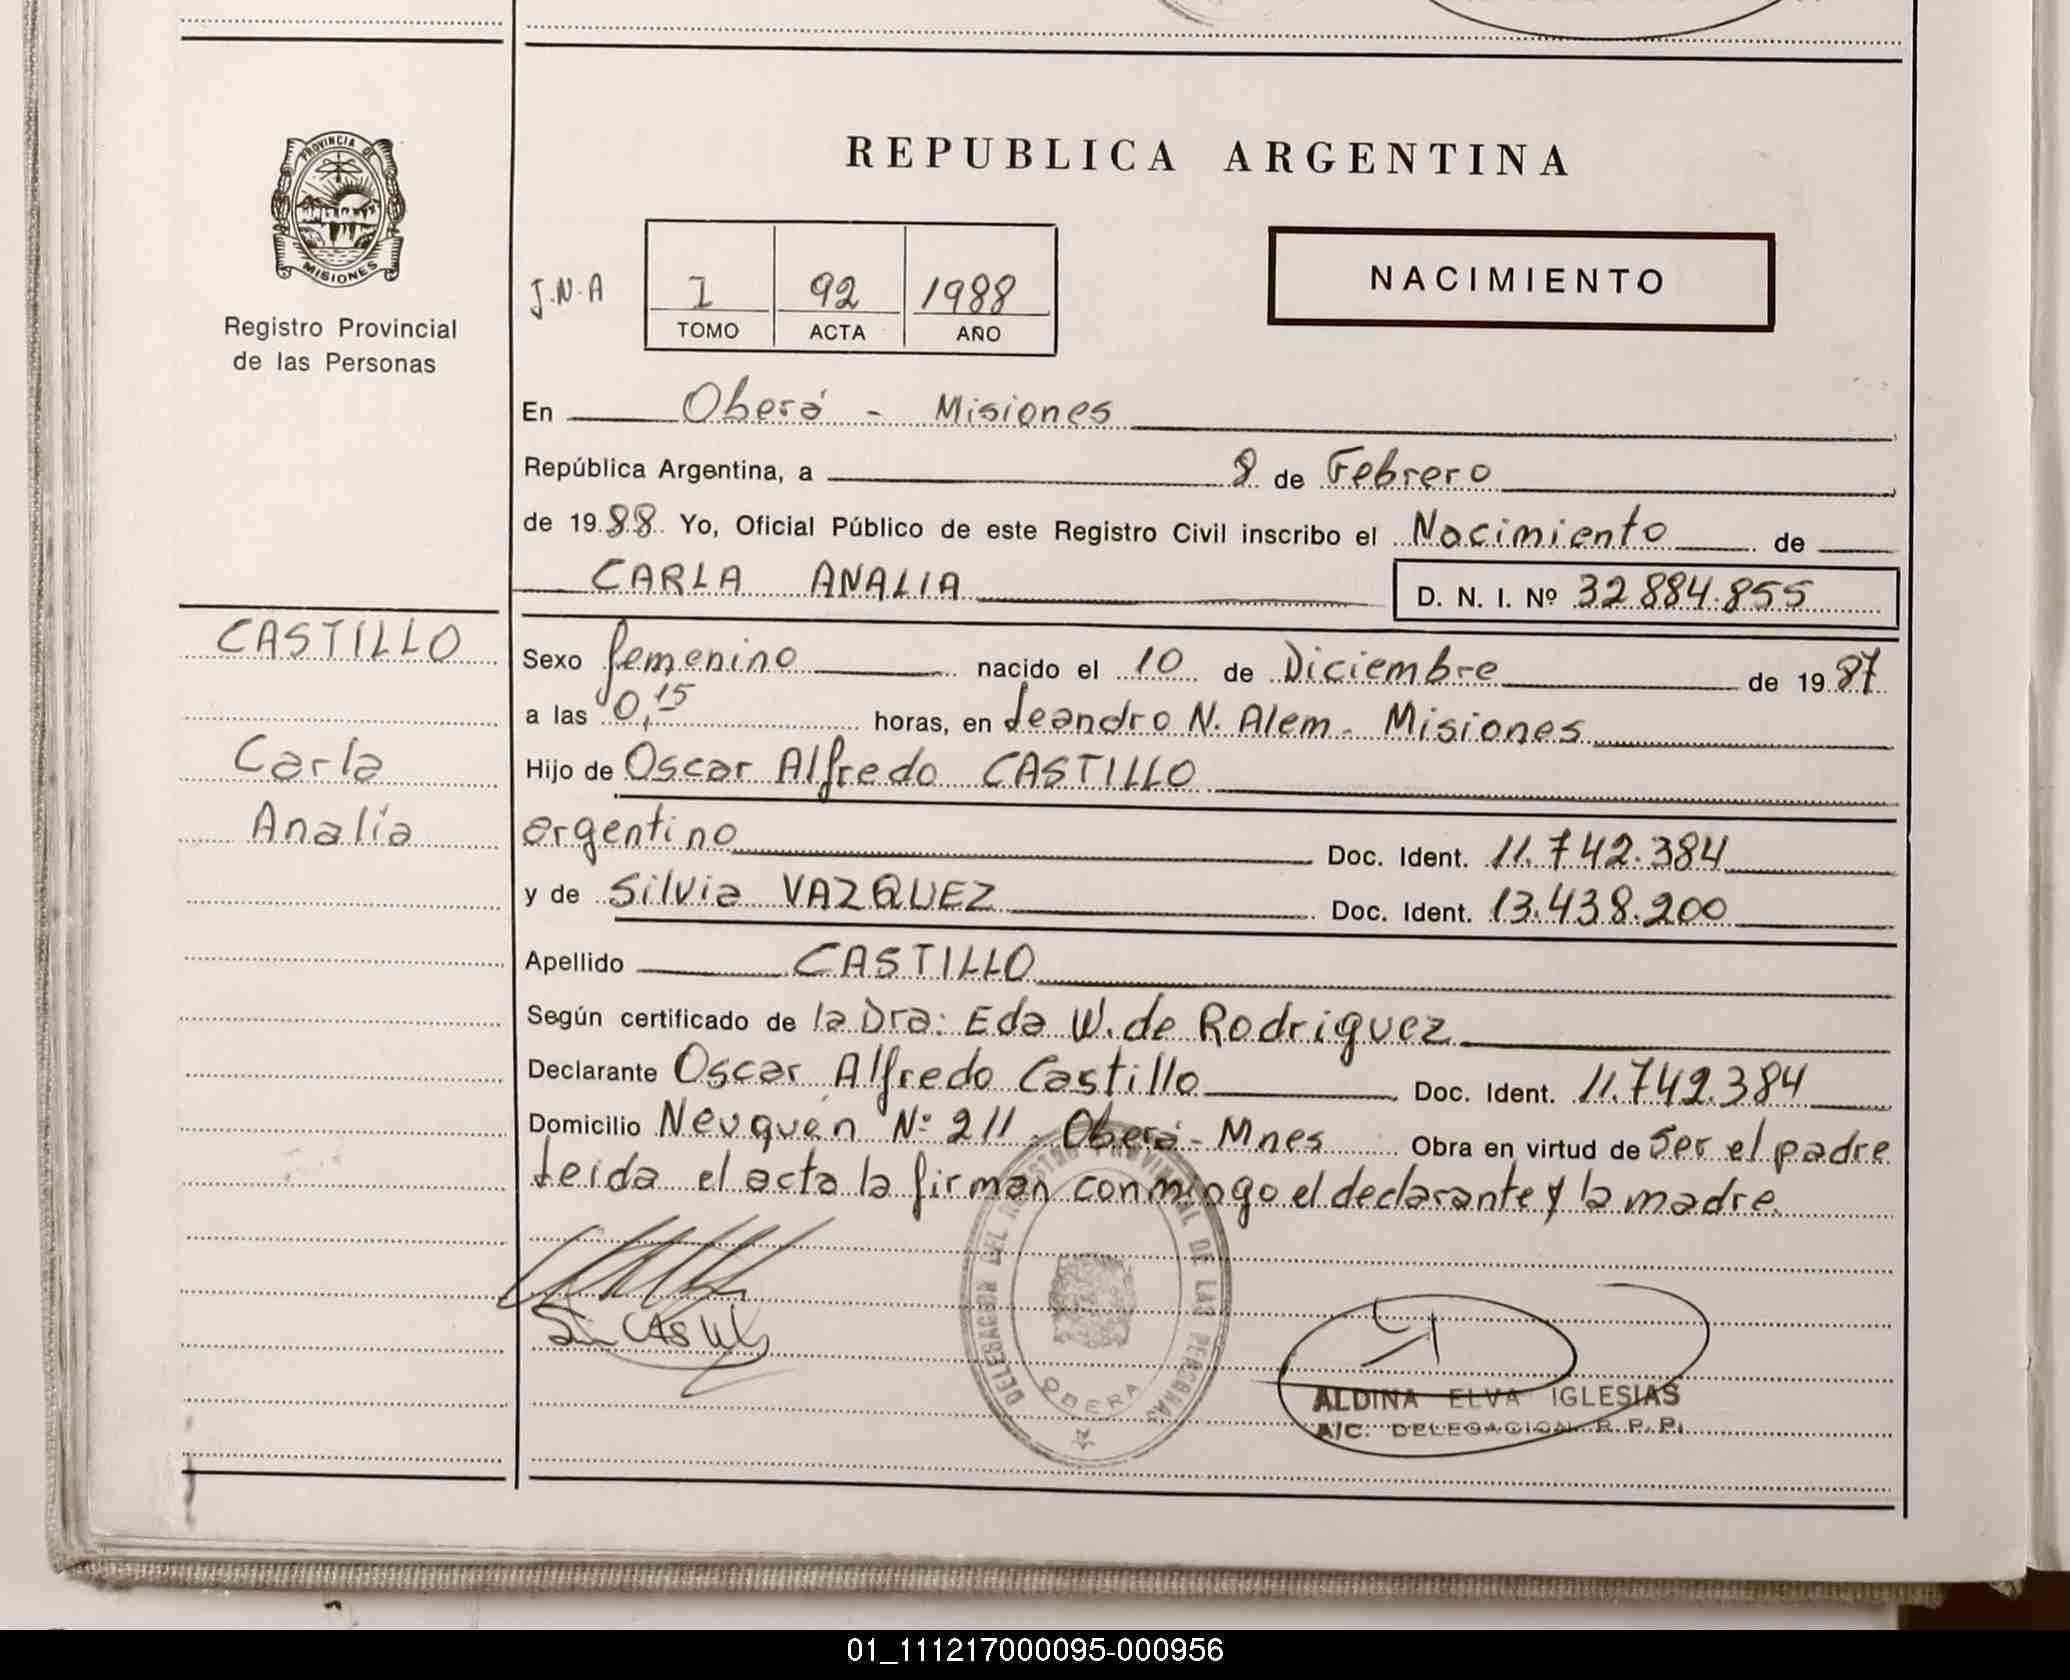 PROVINCIA DE
MISIONES
Registro Provincial
de las Personas
CASTILLO
Carla
Analía
REPUBLICA ARGENTINA
J.N.A
I 92 1988
TOMO ACTA AÑO
NACIMIENTO
En Oberá - Misiones
República Argentina, a 8 de Febrero
de 1988 Yo, Oficial Público de este Registro Civil inscribo el Nacimiento de
CARLA ANALIA D. N. I. Nº 32.884.855
Sexo femenino nacido el 10 de Diciembre de 1987
a las 0,15 horas, en Leandro N. Alem - Misiones
Hijo de Oscar Alfredo CASTILLO
argentino Doc. Ident. 11.742.384
y de Silvia VAZQUEZ Doc. Ident. 13.438.200
Apellido CASTILLO
Según certificado de la Dra: Eda W. de Rodriguez
Declarante Oscar Alfredo Castillo Doc. Ident. 11.742.384
Domicilio Neuquén Nº 211 - Oberá - Mnes Obra en virtud de Ser el padre
Leida el acta la firman conmingo el declarante y la madre.
DELEGACION DEL REGISTRO PROVINCIAL DE LAS PERSONAS
OBERA
ALDINA ELVA IGLESIAS
A/C. DELEGACION R. P. P.
01_111217000095-000956